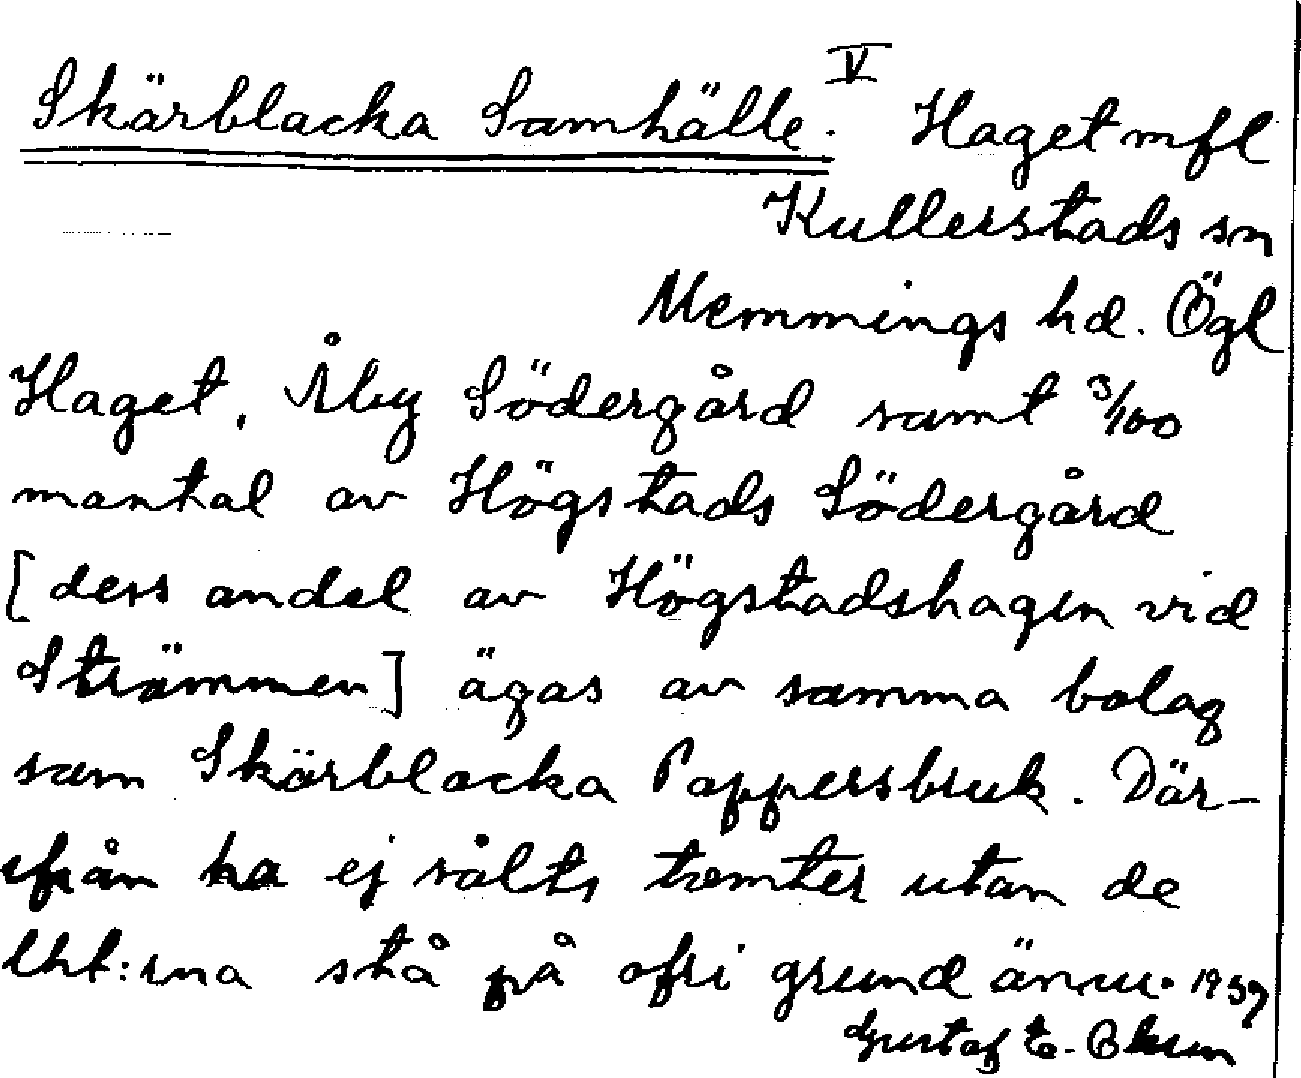 Skärblacka Samhälle. V Haget mfl
Kullerstads sn
Memmings hd. Ögl
Haget, Åby Södergård samt 3/100
mantal av Högstads Södergård
[dess andel av Högstadshagen vid
Strömmen] ägas av samma bolag
som Skärblacka Pappersbruk. Där-
ifrån ha ej sålts tomter utan de
lht:rna stå på ofri grund ännu. 1939
Gustaf E.